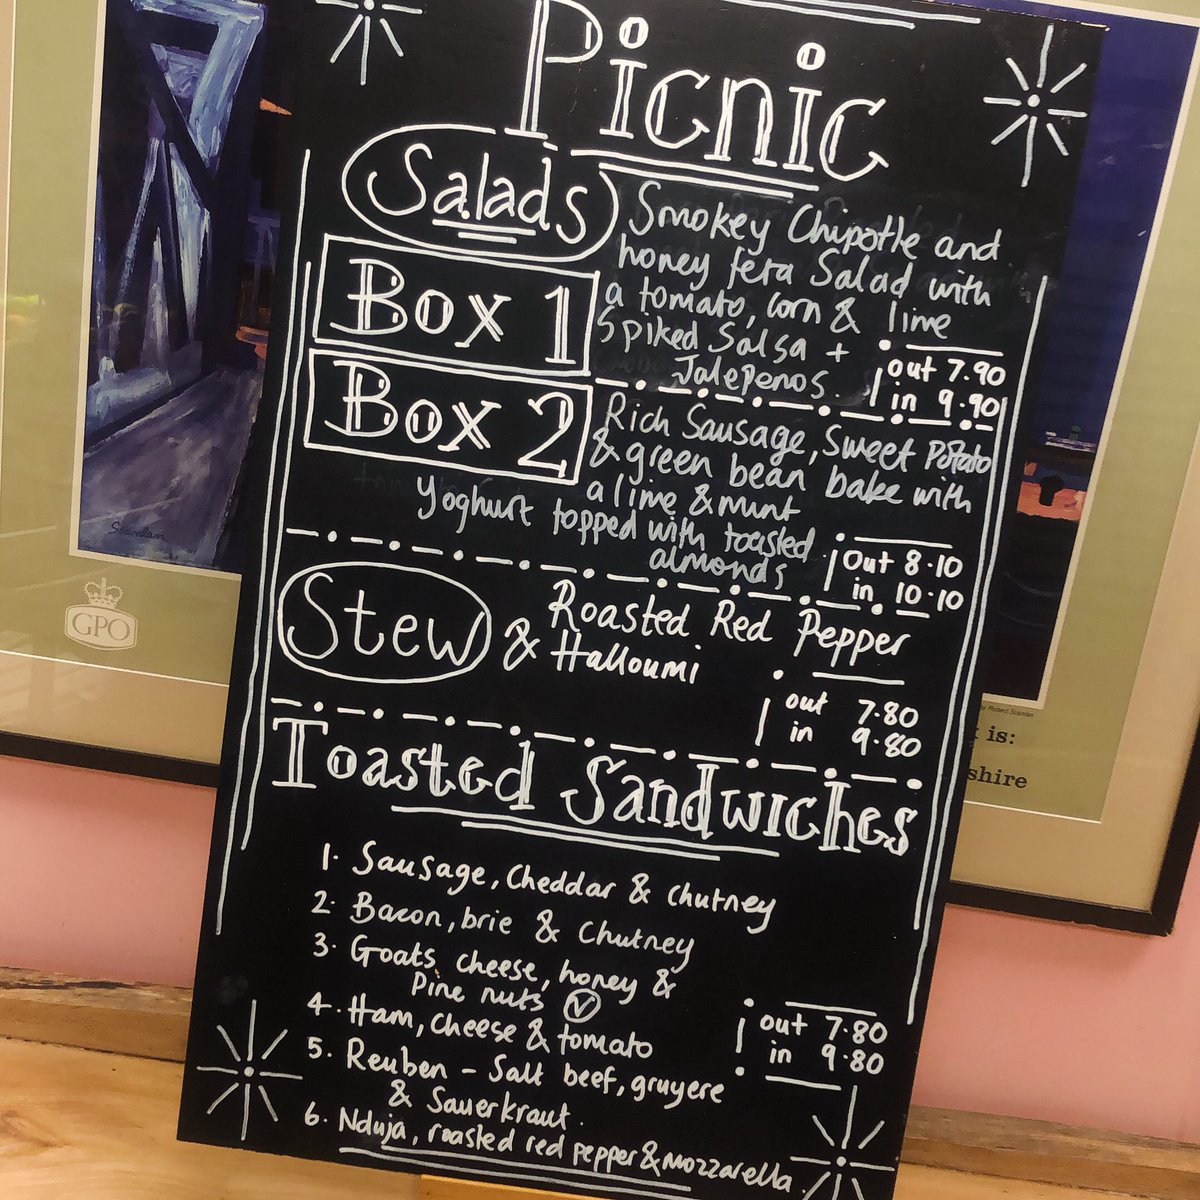 Picnic
Salads
Box 1
Smokey Chipotle and
honey feta Salad with
a tomato, corn & lime
Spiked Salsa +
Jalepenos.
out 7.90
in 9.90
Box 2
Rich Sausage, Sweet Potato
& green bean bake with
a lime & mint
Yoghurt topped with toasted
almonds
Out 8.10
in 10.10
Stew
Roasted Red Pepper
& Halloumi
out 7.80
in 9.80
Toasted Sandwiches
1. Sausage, Cheddar & Chutney
2. Bacon, brie & Chutney
3. Goats cheese, honey &
Pine nuts V
4. Ham, cheese & tomato
5. Reuben - Salt beef, gruyere
& Sauerkraut.
6. Nduja, roasted red pepper & mozzarella.
out 7.80
in 9.80
GPO
is:
shire